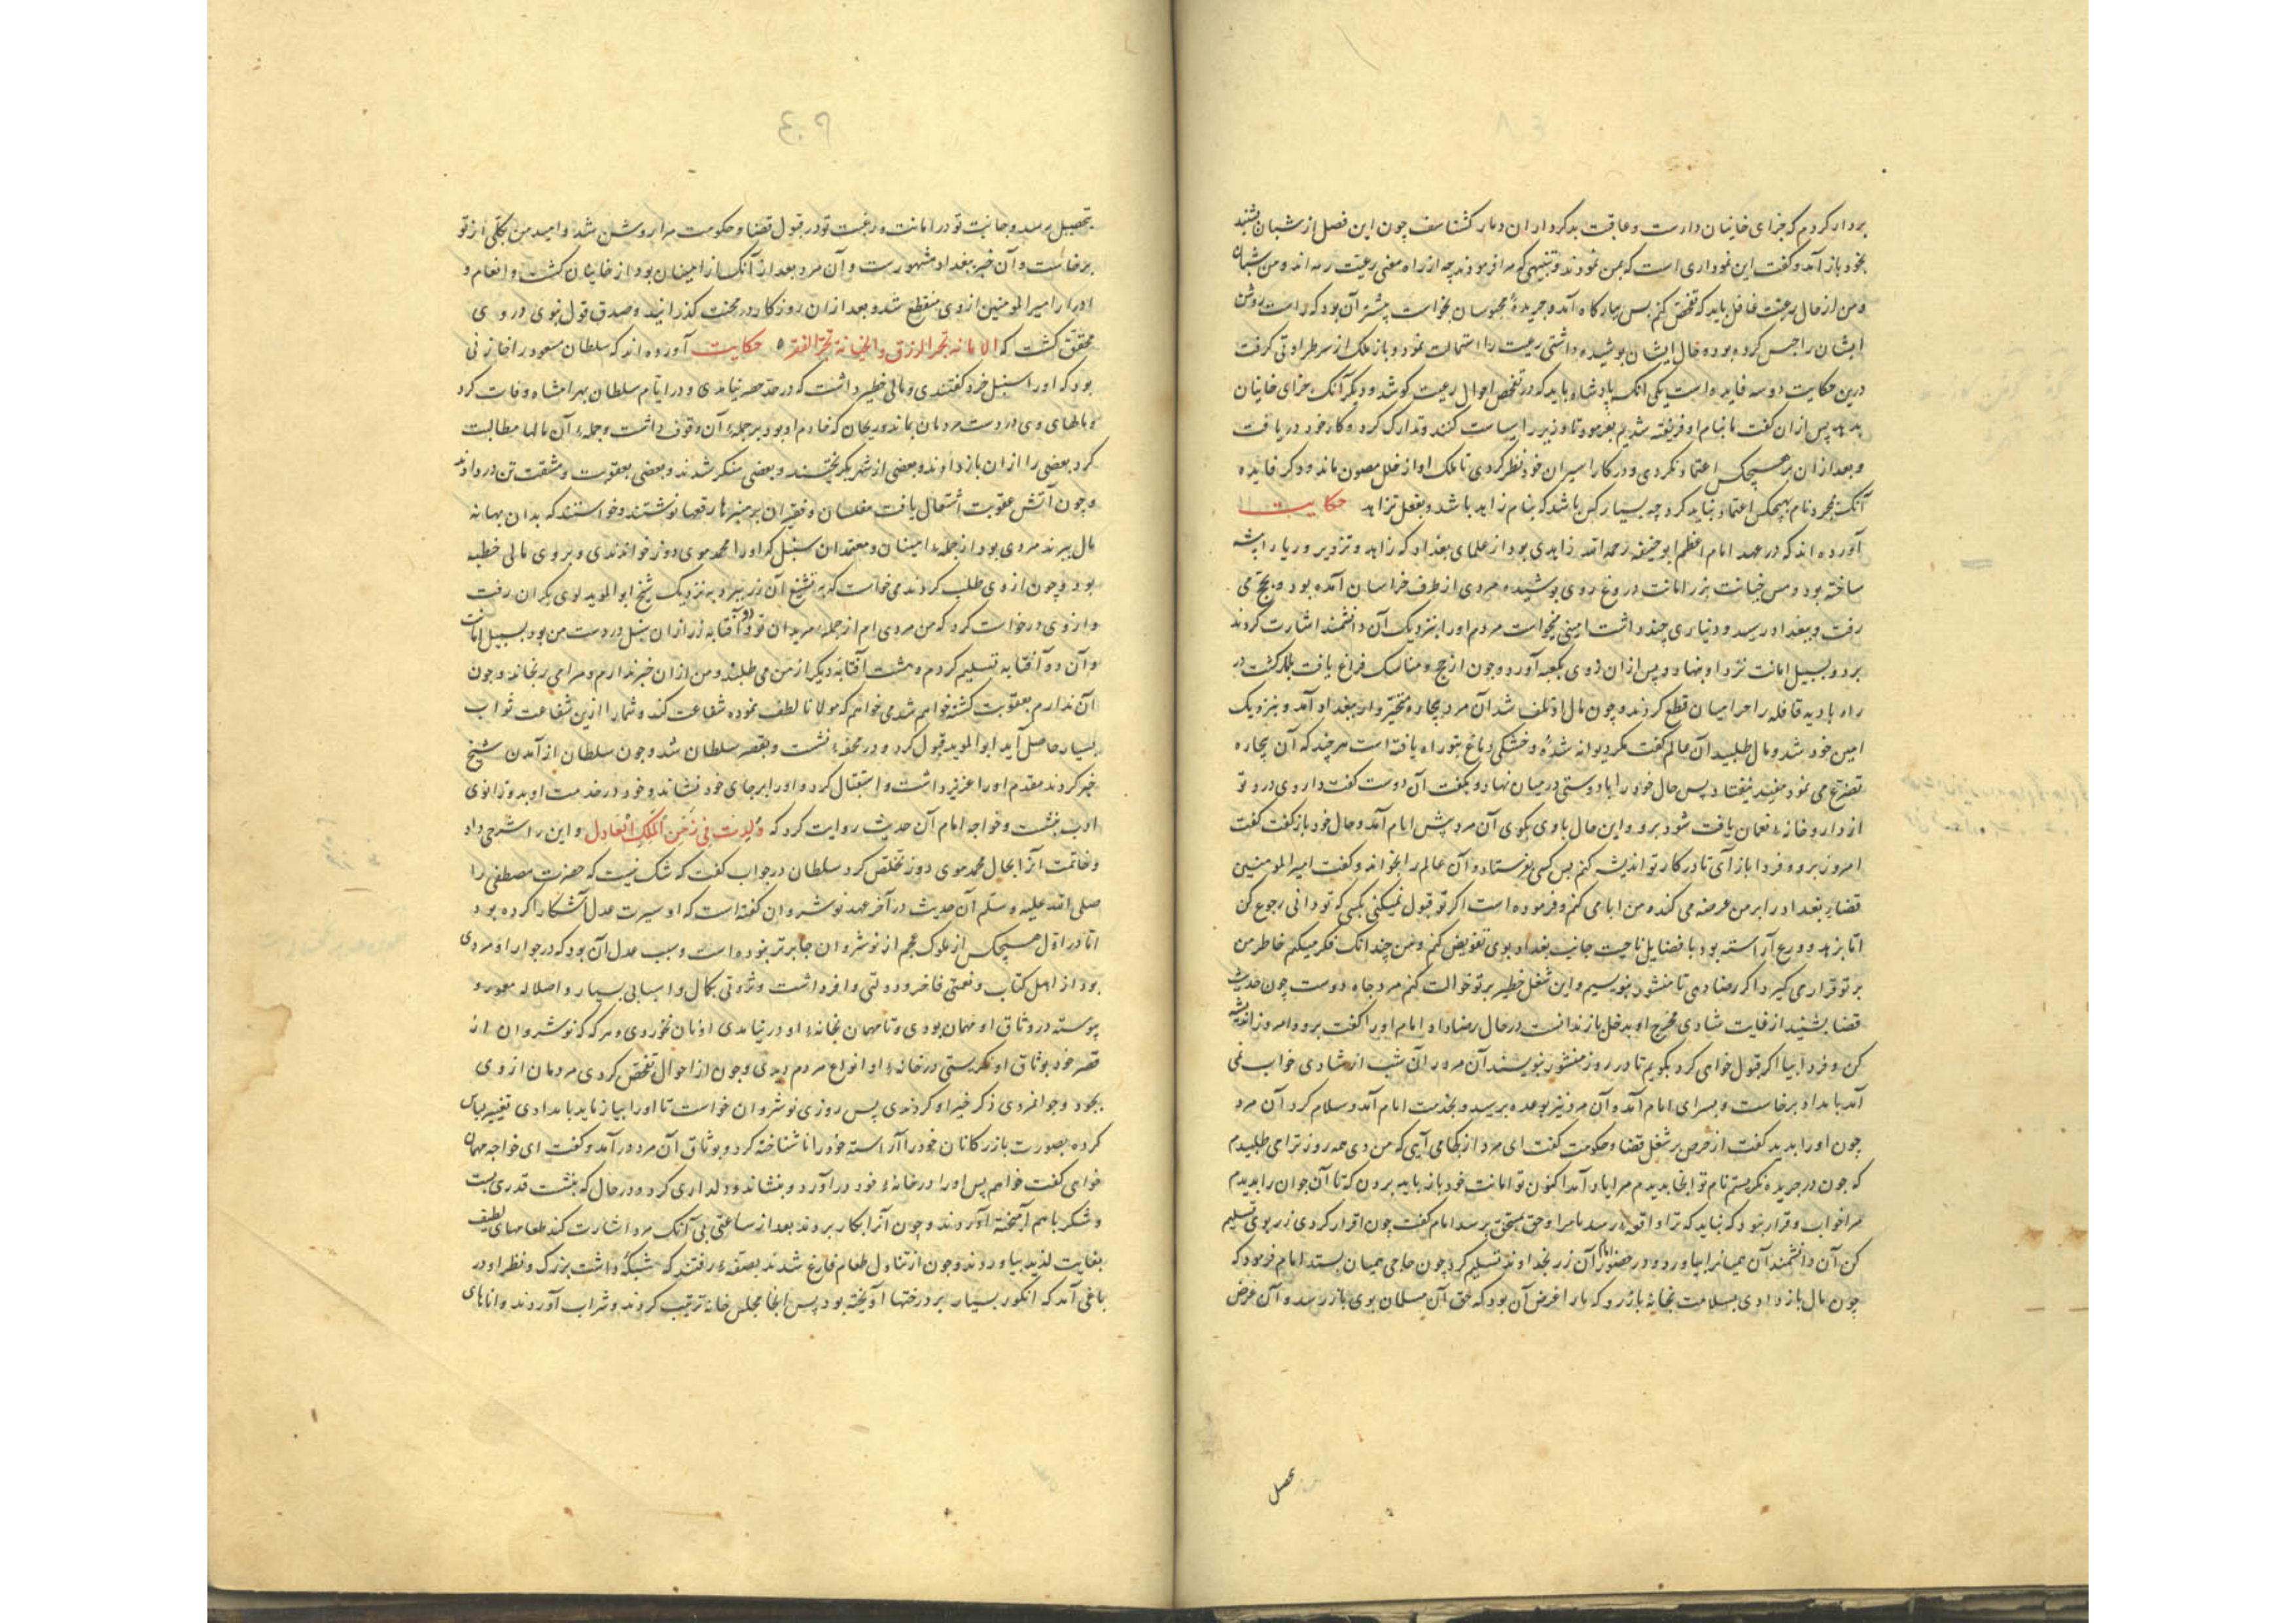 بردار کردم که جزای خاینان دارست و عاقبت بدکرداران دمار کشتاسف چون این فصل از شبان بشنید
بخود باز آمد و کفت این نموداری است که بمن نمودند و تنبیهی که مرا فرمودند چه از راه معنی رعیت رمه اند و من شبان
و من از حال رعیت غافل باید که تفحص کنم پس ببارکاه آمد و جریدهٔ محبوسان بخواست بیشتر آن بود که راست روشن
ایشان را حبس کرده بود و حال ایشان پوشیده داشتی رعیت را استمالت نمود و باز ملک از سر طراوتی کرفت
درین حکایت دو سه فایده است یکی انک پادشاه باید که در تفحص احوال رعیت کوشد و دیکر آنک جزای خاینان
بدید پس از ان کفت ما بنام او فریفته شدیم بفرمود تا وزیر را سیاست کنند و تدارک کرد و کار خود دریافت
و بعد از ان بر هیچکس اعتماد نکردی و در کار اسیران خود نظر کردی تا ملک او از خلل مصون ماند و دکر فایده
آنک بمجرد نام بهیچکس اعتماد نباید کرد چه بسیار کس باشد که بنام زاید باشد و بفعل تزاید حکایت
آورده اند که در عهد امام اعظم ابو حنیفه رحمه الله زاهدی بود از علمای بغداد که زاهد و تزویر و ریا را پیشه
ساخته بود و مس خیانت بزر امانت دروغ روی پوشیده مردی از طرف خراسان آمده بود و بحج می
رفت و ببغداد رسید و دیناری چند داشت امینی میخواست مردم او را بنزدیک آن دانشمند اشارت کردند
برد و بسبیل امانت نزد او بنهاد و پس از ان روی بکعبه آورد و چون از حج و مناسک فراغ یافت بازکشت در
راه بادیه قافله را حرامیان قطع کردند و چون مال او تلف شد آن مرد بیچاره و متحیر وار ببغداد آمد و بنزدیک
امین خود شد و مال طلبید آن عالم کفت مکر دیوانه شدهٔ و خشکی دماغ بتو راه یافته است هر چند که آن بیچاره
تضرع می نمود مفید نیفتاد پس حال خود را با دوستی در میان نهاد و بکفت آن دوست کفت داروی درد تو
از داروخانهٔ نعمان یافت شود برو و این حال با وی بکوی آن مرد پیش امام آمد و حال خود باز کفت کفت
امروز برو و فردا باز آی تا در کار تو اندیشه کنم پس کسی بفرستاد و آن عالم را بخواند و کفت امیر المومنین
قضاء بغداد را بر من عرضه می کند و من ابا می کنم و فرموده است اکر تو قبول نمیکنی بکسی که تو دانی رجوع کن
اتا بزهد و ورع آراسته بود با فضایل ناحیت جانب بغداد بوی تفویض کنم و من چندانک فکر میکنم خاطر من
بر تو قرار می کیرد اکر رضا دهی تا منشور بنویسیم و این شغل خطیر بر تو حوالت کنم مرد جاه دوست چون حدیث
قضا بشنید از غایت شادی مخرج او بدخل باز ندانست در حال رضا داد امام او را کفت برو و امروز اندیشه
کن و فردا بیا اکر قبول خواهی کرد بکویم تا در روز منشور بنویسند آن مرد را آن شب از شادی خواب نمی
آمد بامداد برخاست و بسرای امام آمد و آن مرد نیز بوعده برسید و بخدمت امام آمد و سلام کرد آن مرد
چون او را بدید کفت از حرص بر شغل قضا و حکومت کفت ای مرد از کجا می آیی که من دی همه روز ترا می طلبیدم
که چون در جریده نکریستم نام تو انجا بدیدم مرا یاد آمد اکنون تو امانت خود باز باید برون که تا آن جوان را بدیدم
مرا خواب و قرار نبود که نباید که ترا واقعهٔ رسد یا مرا و حق بمستحق برسد امام کفت چون اقرار کردی زر بوی تسلیم
کن آن دانشمند آن همیان را بیاورد و در حضور امام آن زر بخداوند تسلیم کرد چون حاجی همیان بستد امام فرمود که
چون مال باز دادی بسلامت بخانه باز رو که ما را غرض آن بود که حق آن مسلمان بوی باز رسد و آن غرض
بحصل
٤٠٩
بتحصیل برسد و جانبت تو در امانت و رغبت تو در قبول قضا و حکومت مرا روشن شد و امید من بکلی از تو
برخاست و آن خبر ببغداد مشهورست و آن مرد بعد از آنک از امینان بود از خاینان کشت و انعام و
ادرار امیر المومنین از وی منقطع شد و بعد از ان روزکار در محنت کذرانید و صدق قول نبوی در وی
محقق کشت که الامانه تجر الرزق والخیانة تجر الفقر حکایت آورده اند که سلطان مسعود را خازنی
بود که او را سنبل خرد کفتندی و مالی خطیر داشت که در حد حصر نیامدی و در ایام سلطان بهرامشاه وفات کرد
و مالهای وی در دست مردمان بماند و ریحان که خادم او بود بر جملهٔ آن وقوف داشت و جملهٔ آن مالها مطالبت
کرد بعضی را از ان باز دادند و بعضی از شهر بکریختند و بعضی منکر شدند و بعضی بعقوبت و مشقت تن در دادند
و چون آتش عقوبت اشتعال یافت مفلسان و فقیران بر منبرها رقعها نوشتند و خواستند که بدان بهانه
مال ببرند مردی بود از جملهٔ امینان و معتمدان سنبل که او را محمد موی دوز خواندندی و بر وی مالی خطیر
بود و چون از وی طلب کردند می خواست که به تشنیع آن زر ببرد به نزدیک شیخ ابو الموید لوی بکران رفت
و از وی درخواست کرد که من مردی ام از جملهٔ مریدان تو و دو آفتابه زر از ان سنبل در دست من بود بسبیل امانت
و آن دو آفتابه تسلیم کردم و هشت آفتابه دیکر از من می طلبند و من از ان خبر ندارم و مرا می رنجانند و چون
آن ندارم بعقوبت کشته خواهم شد می خواهم که مولانا لطف نموده شفاعت کند و شما را ازین شفاعت ثواب
بسیار حاصل آید ابو الموید قبول کرد و در محفهٔ نشست و بقصر سلطان شد و چون سلطان از آمدن شیخ
خبر کردند مقدم او را عزیز داشت و استقبال کرد و او را بر جای خود نشاند و خود در خدمت او بدو زانوی
ادب بنشست و خواجه امام آن حدیث روایت کرد که وُلِدتُ فِی زَمَنِ المَلِکِ العَادِل و این را شرحی داد
و خاتمت آنرا بحال محمد موی دوز تخلص کرد سلطان در جواب کفت که شک نیست که حضرت مصطفی را
صلی الله علیه وسلم آن حدیث در آخر عهد نوشروان کفته است که او سیرت عدل آشکارا کرده بود
اتا در اول هیچکس از ملوک عجم از نوشروان جابرتر نبوده است و سبب عدل آن بود که در جوار او مردی
بود از اهل کتاب و نعمتی فاخر و دولتی وافر داشت و ثروتی بکمال و اسبابی بسیار و املاک معمور و
پیوسته در وثاق او مهمان بودی و تا مهمان بخانهٔ او در نیامدی او نان نخوردی و هر که که نوشروان از
قصر خود بوثاق او نکریستی در خانهٔ او انواع مردم دیدی و چون از احوال تفحص کردی مردمان از وی
بجود و جوانمردی ذکر خیر او کردندی پس روزی نوشروان خواست تا او را بیازماید بامدادی تغییر لباس
کرده بصورت بازرکانان خود را آراسته خود را ناشناخته کرد و بوثاق آن مرد درآمد و کفت ای خواجه مهمان
خواهی کفت خواهم پس او را در خانهٔ خود درآورد و بنشاند و دلداری کرد و در حال که بنشست قدری پست
و شکر باهم آمیخته آوردند و چون آنرا بکار بردند بعد از ساعتی بی آنک مرد اشارت کند طعامهای لطیف
بغایت لذیذ بیاوردند و چون از تناول طعام فارغ شدند بصفهٔ رفتند که شبکهٔ داشت بزرک و نظر او در
باغی آمد که انکور بسیار بر درختها آویخته بود پس انجا مجلس خانه ترتیب کردند و شراب آوردند و اناهای